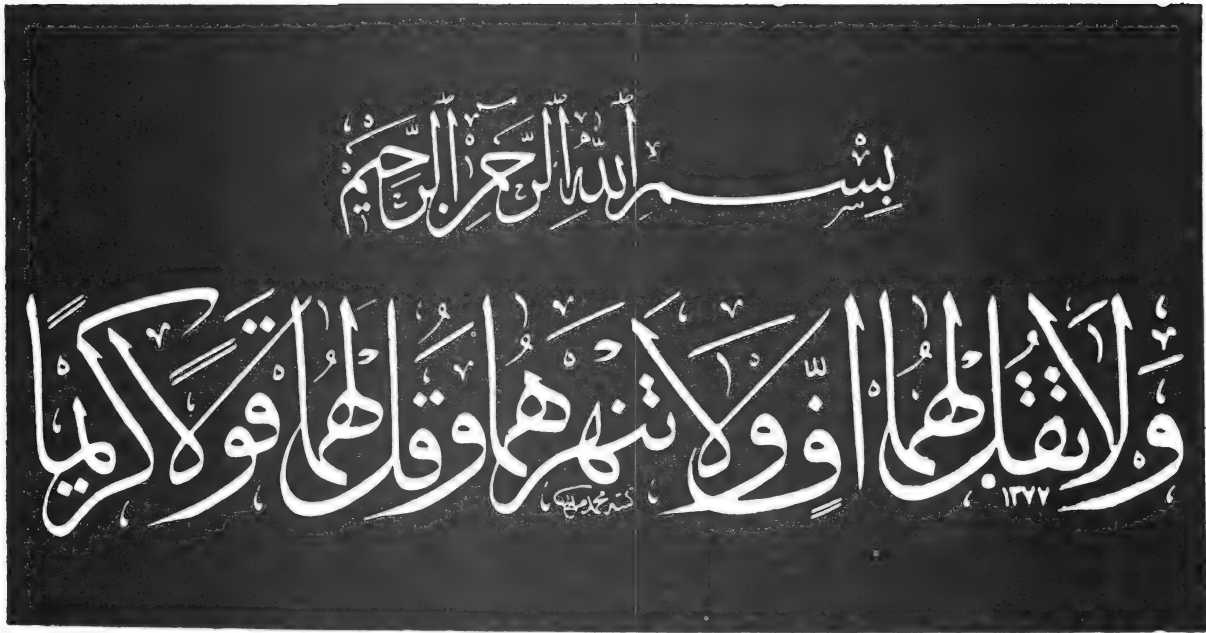 بِسْمِ ٱللَّهِ ٱلرَّحْمَٰنِ ٱلرَّحِيمِ
وَلَا تَقُل لَهُمَا اُفٍّ وَلَا تَنْهَرْهُمَا وَقُل لَهُمَا قَوْلًا كَرِيمًا
١٣٧٧
كتبه محمد صالح